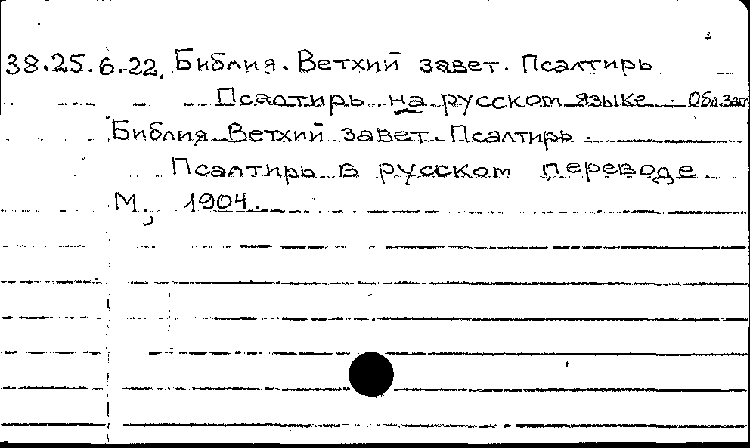 38.25.6.22. Библия. Ветхий завет. Псалтирь
Псалтирь на русском языке Обл.заг
Библия. Ветхий завет. Псалтирь.
Псалтирь в русском переводе
М., 1904.